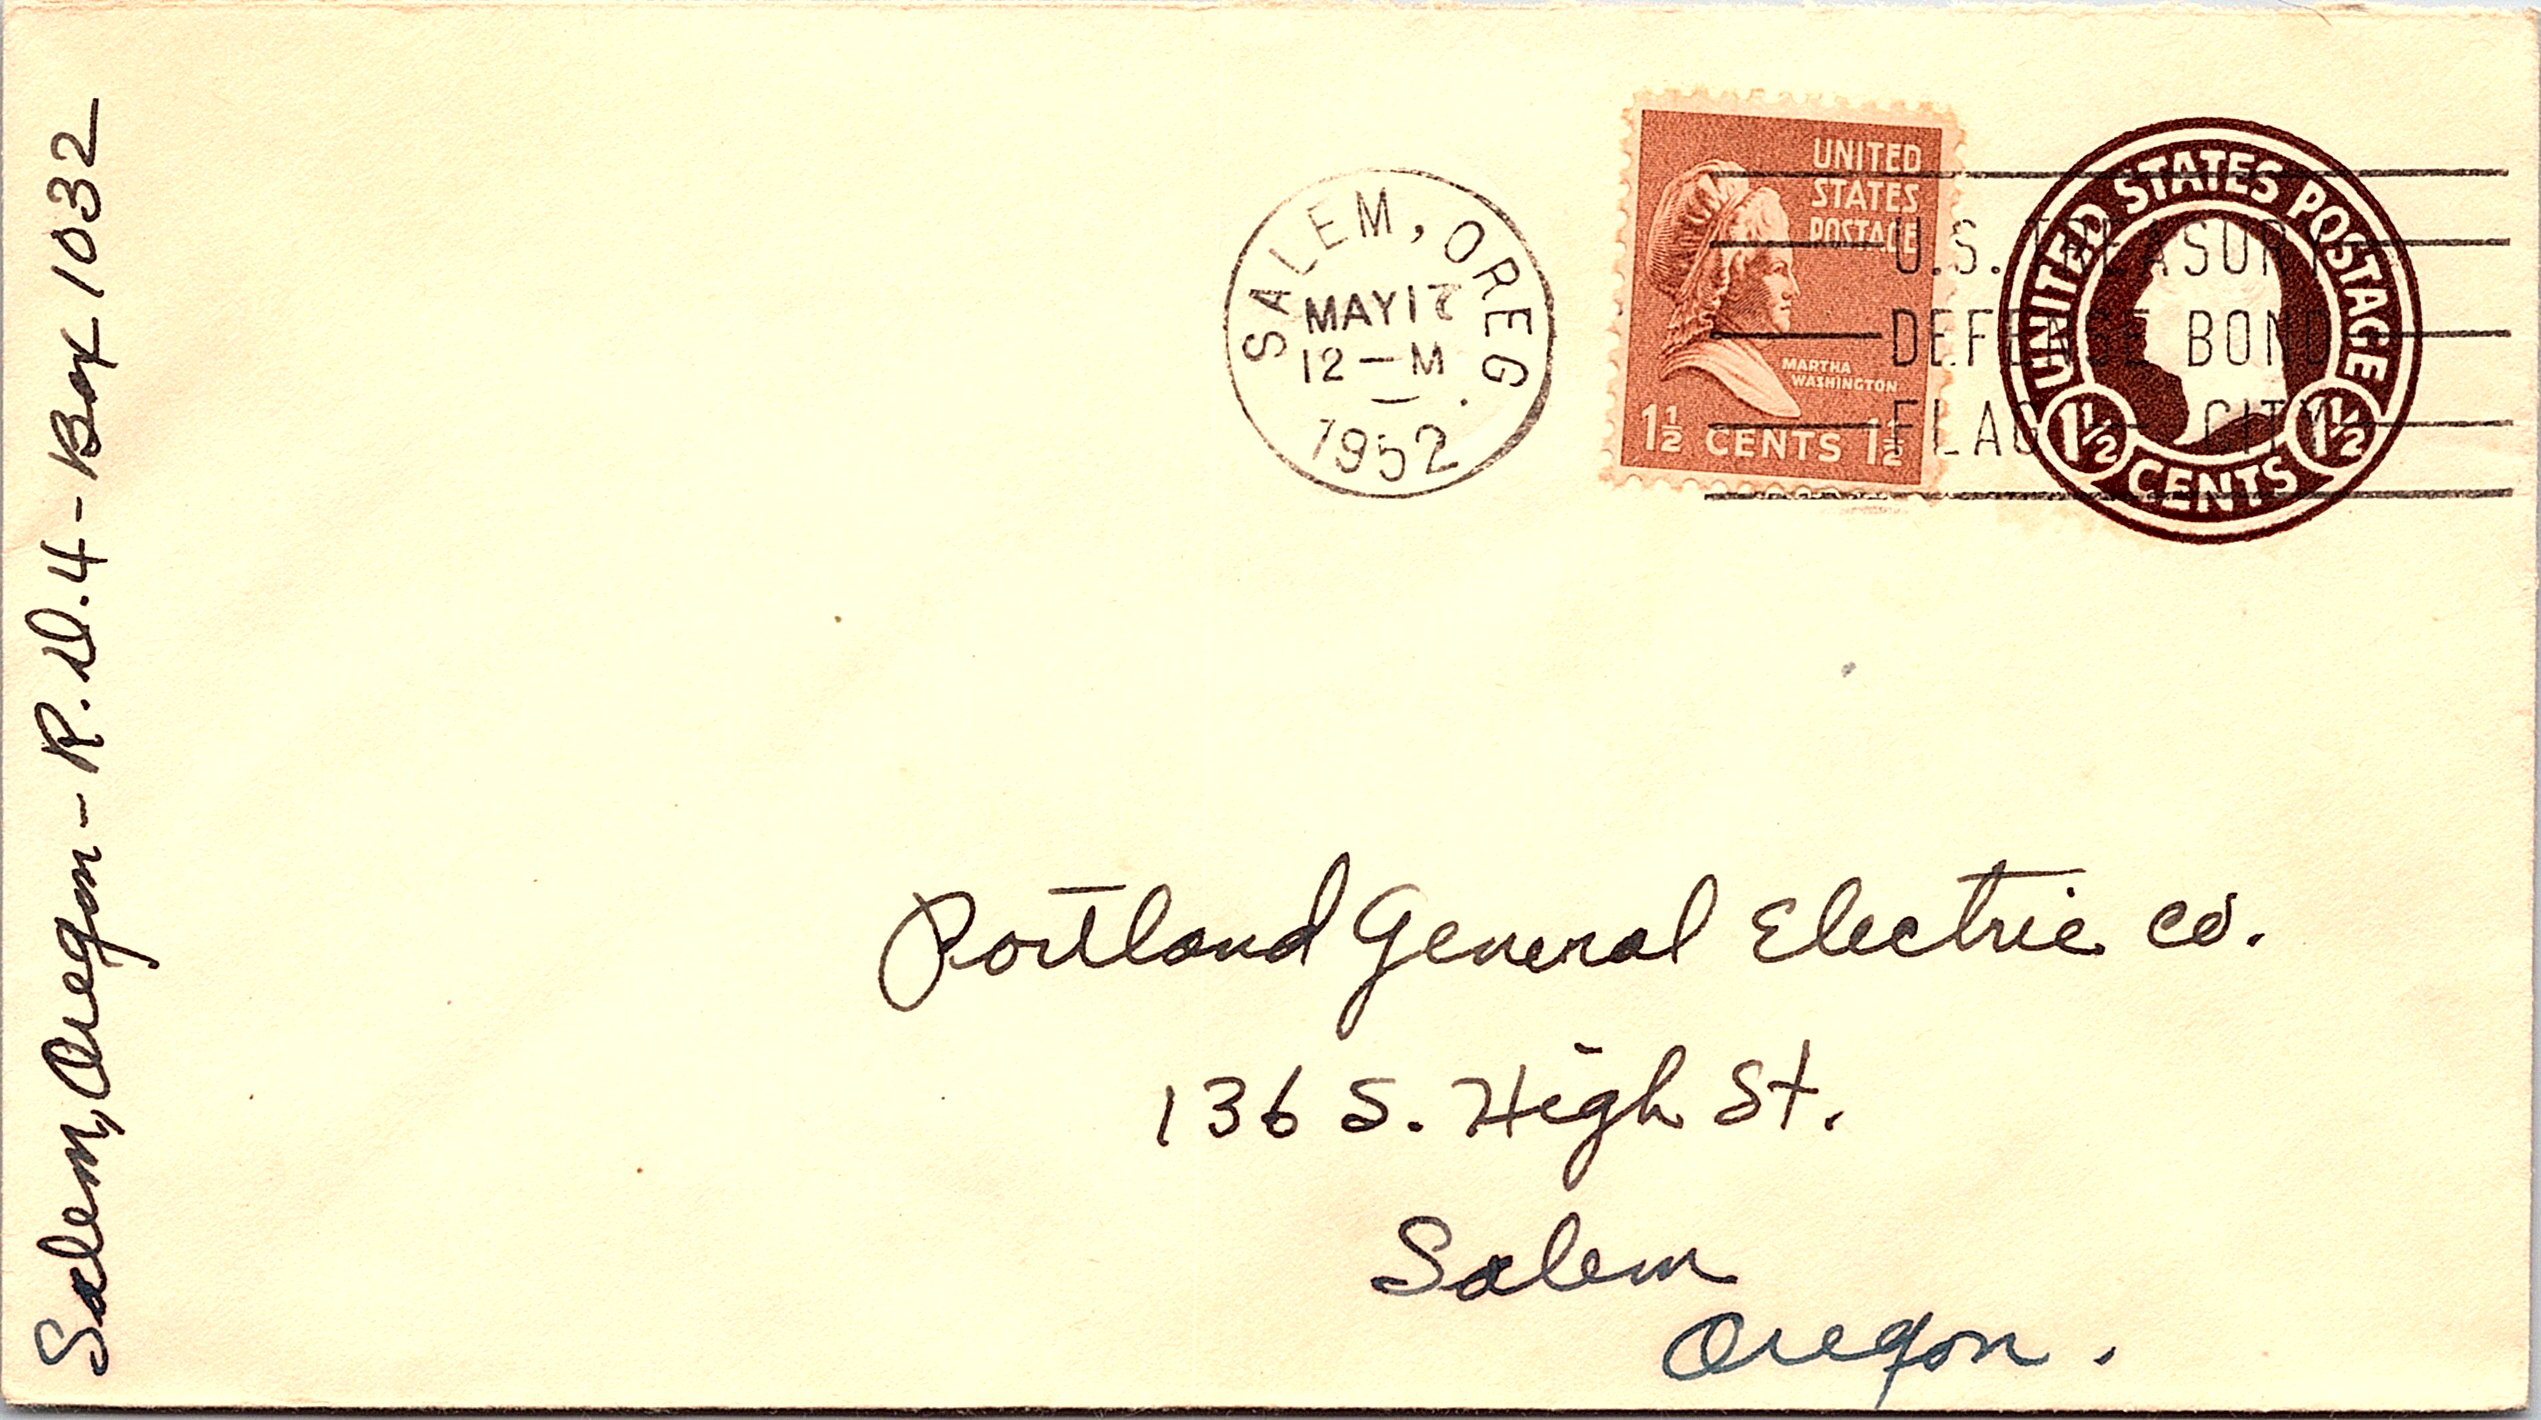 Salem, Oregon - R.D.4 - Box 1032
SALEM, OREG.
MAY 17
12 - M
1952
UNITED
STATES
POSTAGE
MARTHA
WASHINGTON
1½ CENTS 1½
U.S. TREASURY
DEFENSE BOND
FLAG - CITY
UNITED STATES POSTAGE
1½ CENTS 1½
Portland General Electric Co.
136 S. High St.
Salem
Oregon.